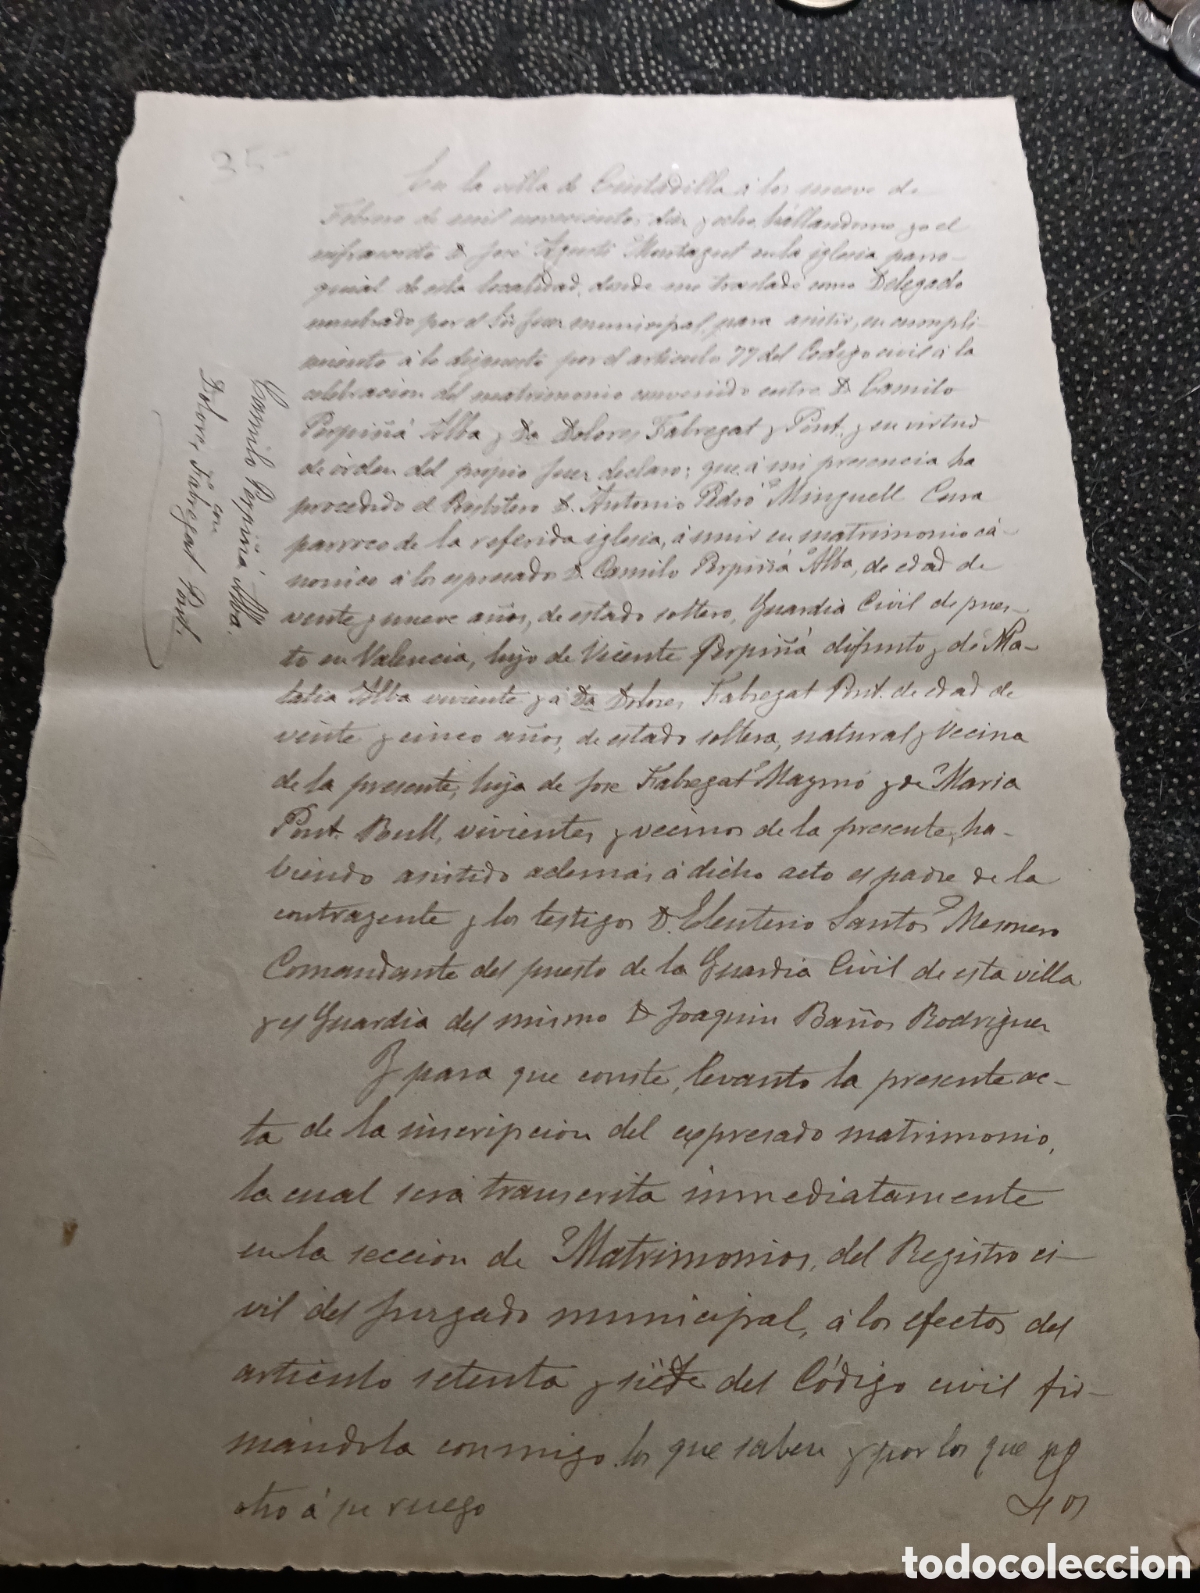 35
En la villa de Ciutadilla á los nueve de
Febrero de mil novecientos diez y ocho hallandome yo el
infrascrito D. José Agusti Montagut en la iglesia parro-
quial de esta localidad, donde me traslado como Delegado
nombrado por el Sr Juez municipal, para asistir, en cumpli-
miento á lo dispuesto por el articulo 77 del Codigo civil á la
celebracion del matrimonio convenido entre D. Camilo
Perpiñá Alba y Da Dolores Fabregat y Pont. y en virtud
de órden del propio Juez declaro: que á mi presencia ha
procedido el Presbitero D. Antonio Pedró Minguell Cura
parroco de la referida iglesia, á unir en matrimonio ca-
nonico á los expresados D. Camilo Perpiñá Alba, de edad de
veinte y nueve años, de estado soltero, Guardia Civil de pues-
to en Valencia, hijo de Vicente Perpiñá difunto y de Na-
talia Alba viviente y á Da Dolores Fabregat Pont. de edad de
veinte y cinco años, de estado soltera, natural y vecina
de la presente, hija de José Fabregat Maymó y de Maria
Pont Bull, vivientes y vecinos de la presente, ha-
biendo asistido además á dicho acto el padre de la
contrayente y los testigos D. Eleuterio Santos Mesonero
Comandante del puesto de la Guardia Civil de esta villa
y el Guardia del mismo D Joaquin Baños Rodriguez
Y para que conste, levanto la presente ac-
ta de la inscripcion del expresado matrimonio,
la cual será transcrita inmediatamente
en la seccion de Matrimonios, del Registro ci-
vil del Juzgado municipal, á los efectos del
articulo setenta y siete del Código civil fir-
mándola conmigo los que saben y por los que no
otro á su ruego
Camilo Perpiñá Alba.
con
Dolores Fabregat Pont.
todocoleccion